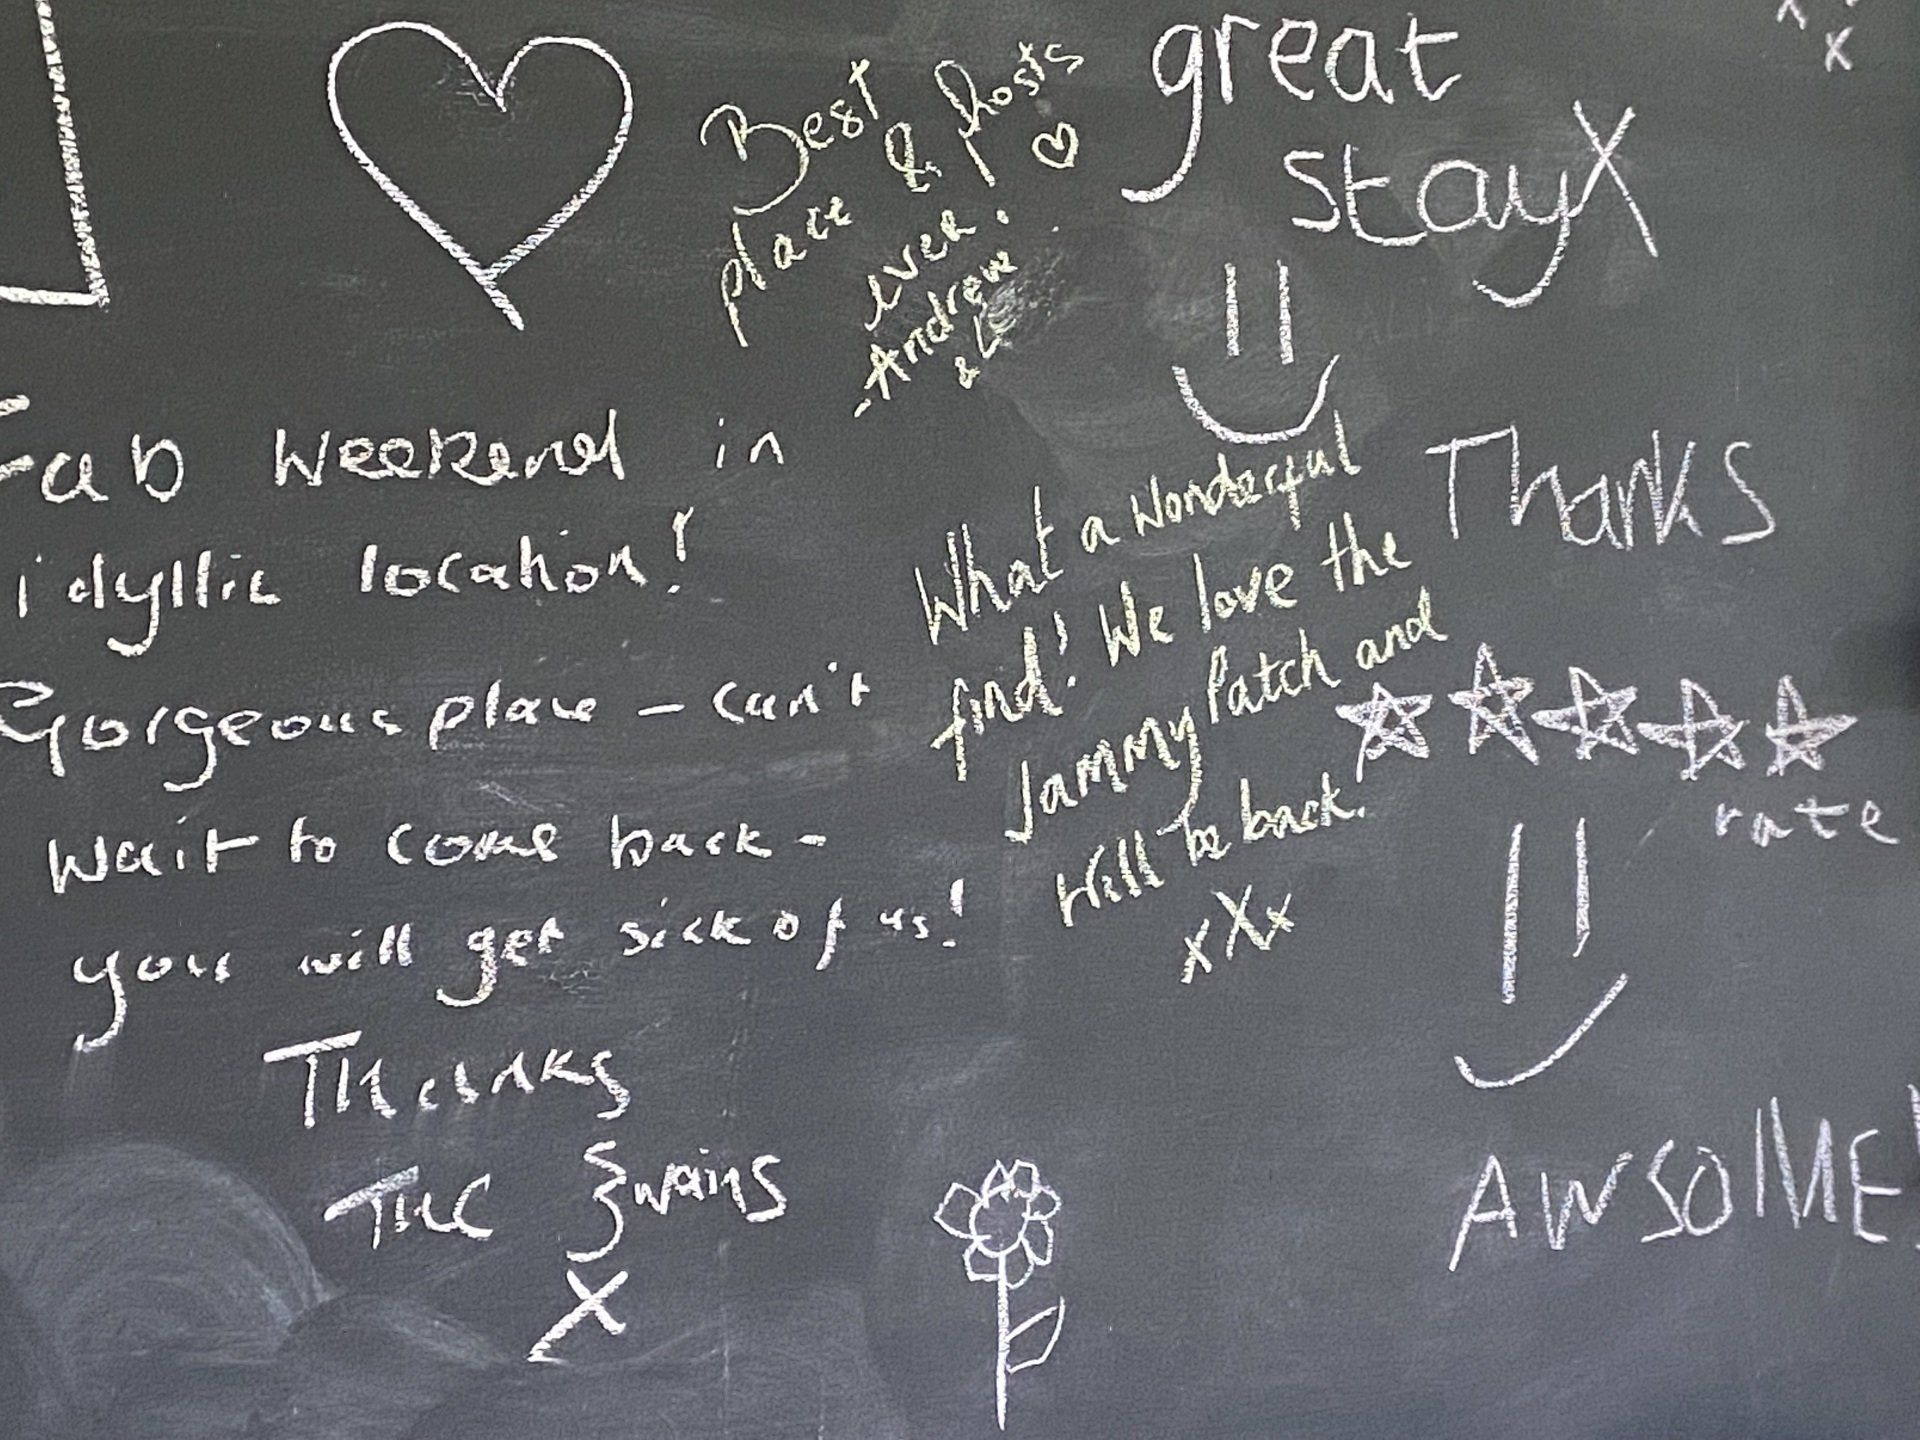 Best
place & hosts
ever!
-Andrew
&
great
stay X
x
Fab weekend in
idyllic location!
Gorgeous place - can't
wait to come back -
you will get sick of us!
Thanks
The Swains
X
What a wonderful
find! We love the
Jammy Patch and
will be back.
xXx
Thanks
rate
AWSOME!